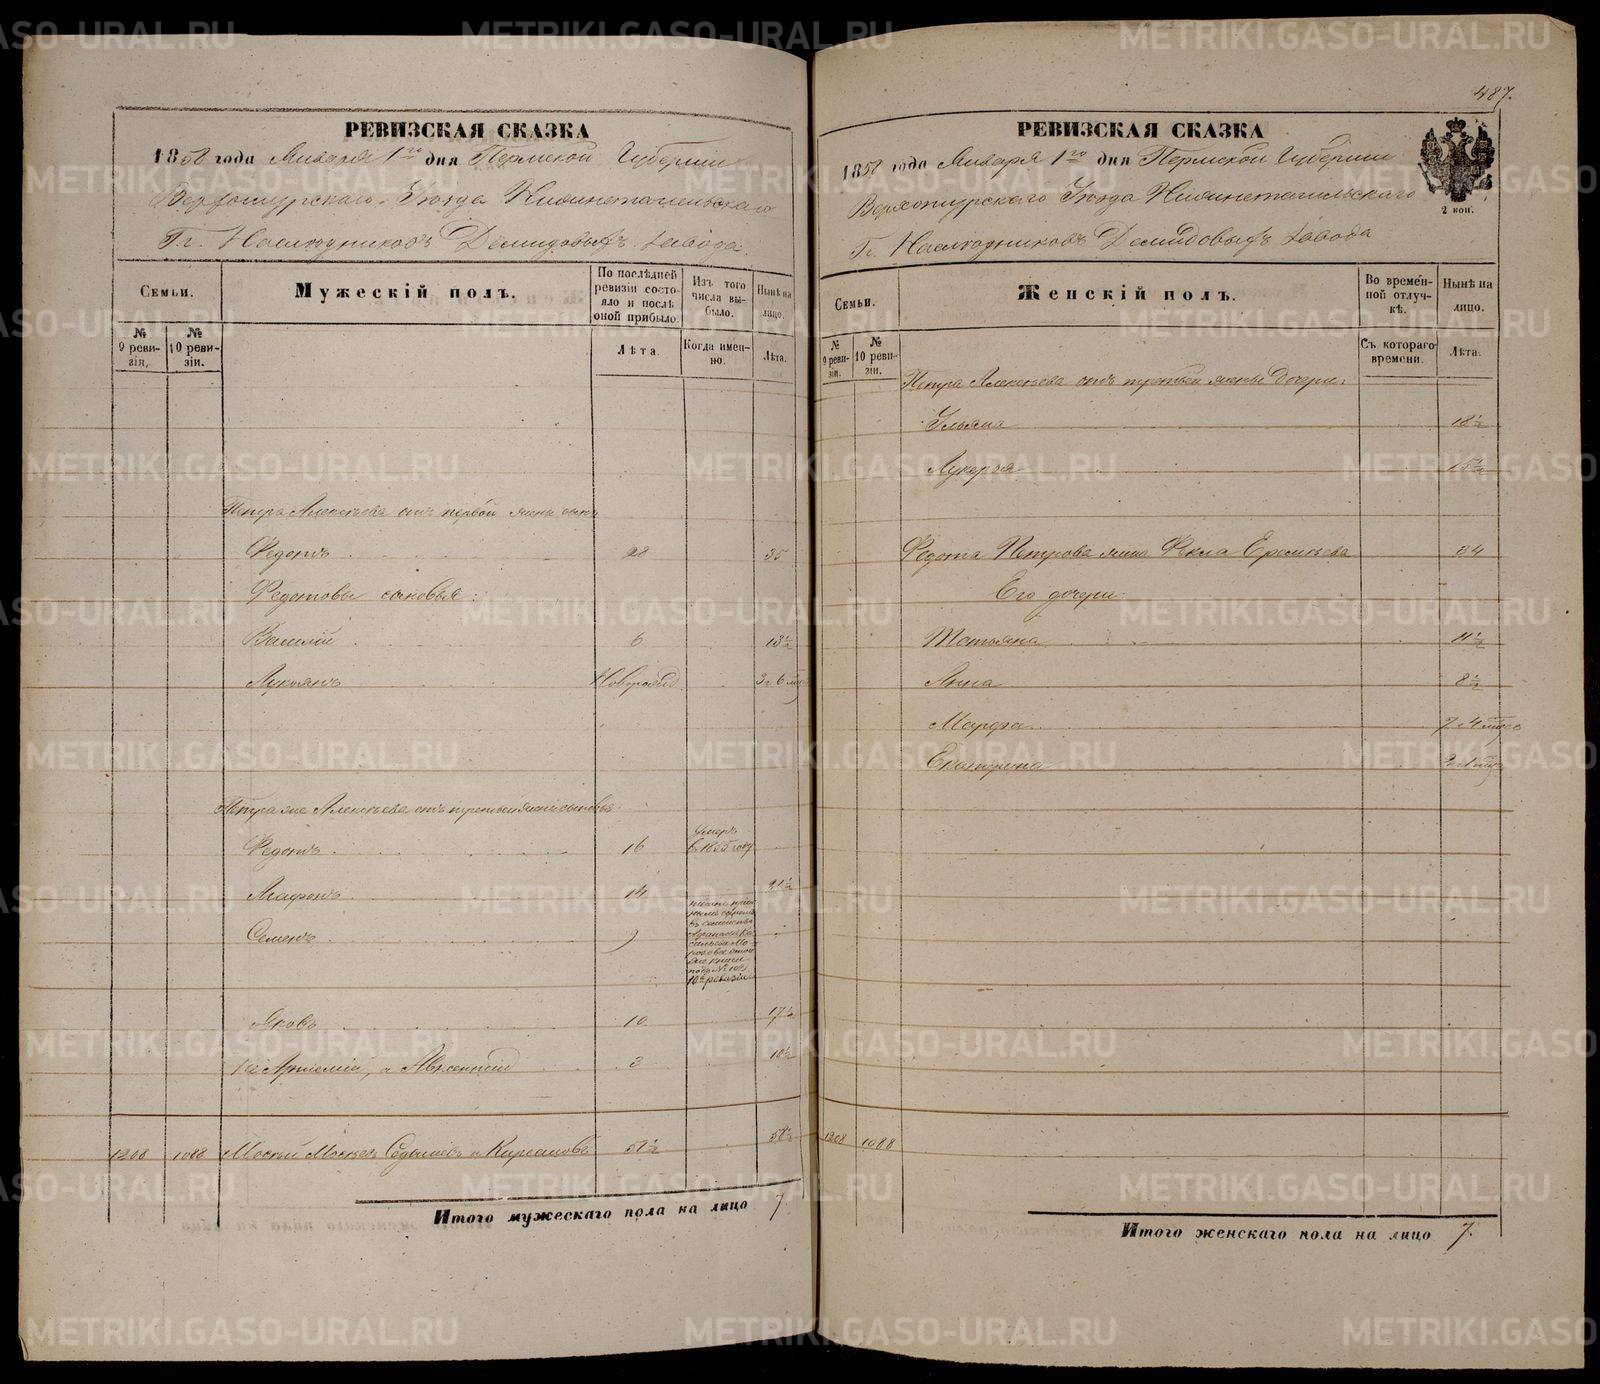 487.
РЕВИЗСКАЯ СКАЗКА
1858 года Января 1го дня Пермской Губернии
Верхотурскаго Уѣзда Нижнетагильскаго
Гг. Наслѣдниковъ Демидовыхъ завода
Семьи.
№ 9 ревизія,
№ 10 ревизіи.
Мужескій полъ.
По послѣдней ревизіи состояло и послѣ оной прибыло.
Лѣта.
Изъ того числа выбыло.
Когда именно.
Нынѣ на лицо.
Лѣта.
Петра Алексѣева отъ первой жены сынъ
Федотъ 28 35
Федотовы сыновья:
Василій 6 13½
Лукоянъ Новорожд 3 г 6 мѣс
Петра же Алексѣева отъ третьей жены сыновья
Федотъ 16 Умеръ въ 1855 году
Агафонъ 14 21½
Семенъ 9
10й ревизіи
Яковъ 10 17½
Артемій, а Авксентій 3 10½
1208 1088 Мосѣевъ Седышевъ и Кирсановъ 51½ 58½
Итого мужескаго пола на лицо 7.
РЕВИЗСКАЯ СКАЗКА
1858 года Января 1го дня Пермской Губерніи
Верхотурскаго Уѣзда Нижнетагильскаго
Гг. Наслѣдниковъ Демидовыхъ завода
2 коп.
Семьи.
№ 9 ревизіи.
№ 10 ревизіи.
Женскій полъ.
Во временной отлучкѣ.
Съ котораго времени.
Нынѣ на лицо.
Лѣта.
Петра Алексѣева отъ третьей жены дочери:
Ульяна 18½
Лукерья 15½
Федота Петрова жена Фекла Еремѣева 34
Его дочери:
Татьяна 11½
Анна 8½
Марфа 7 г 4 мѣс
Екатерина
1208 1088
Итого женскаго пола на лицо 7.
METRIKI.GASO-URAL.RU